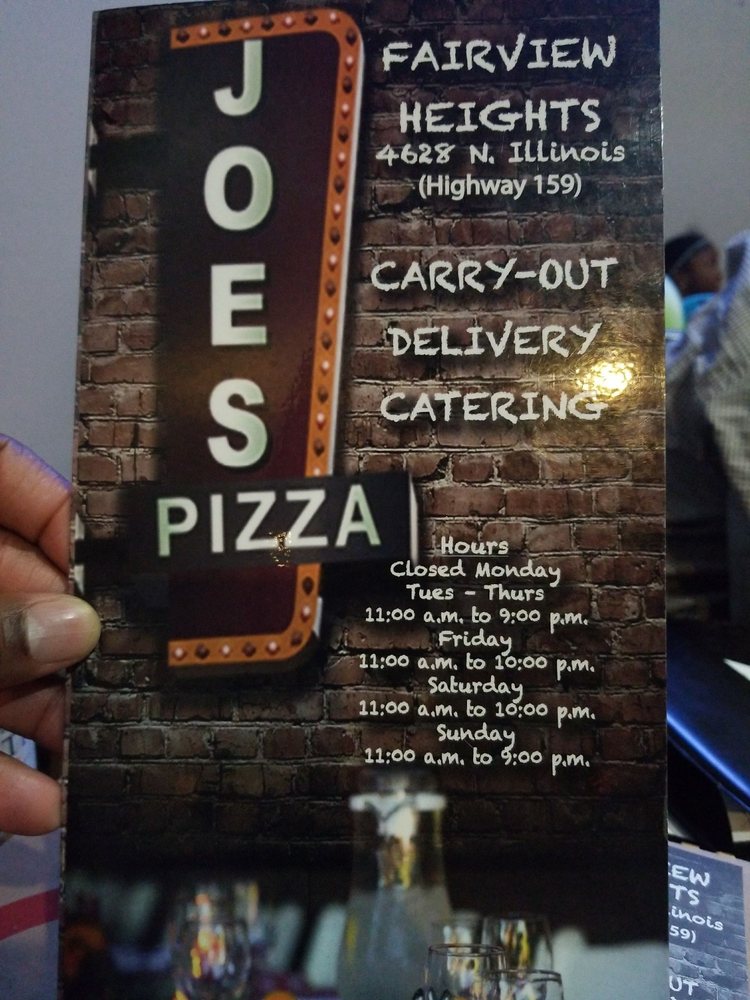 JOES
PIZZA
FAIRVIEW
HEIGHTS
4628 N. Illinois
(Highway 159)
CARRY-OUT
DELIVERY
CATERING
Hours
Closed Monday
Tues - Thurs
11:00 a.m. to 9:00 p.m.
Friday
11:00 a.m. to 10:00 p.m.
Saturday
11:00 a.m. to 10:00 p.m.
Sunday
11:00 a.m. to 9:00 p.m.